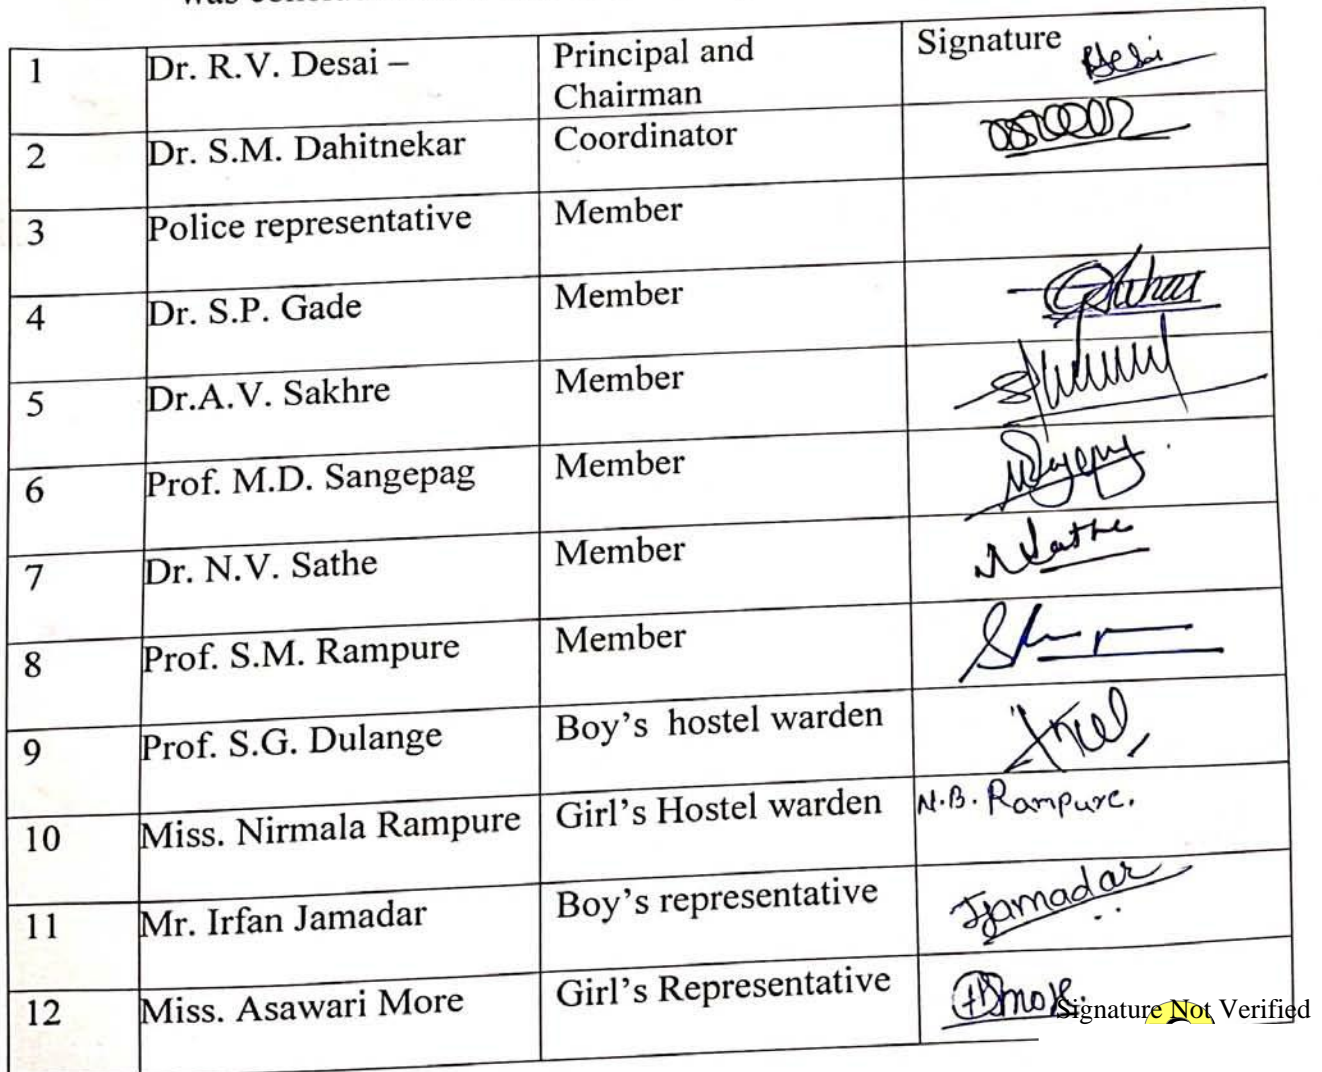 1 Dr. R.V. Desai – Principal and Signature Desai
Chairman
2 Dr. S.M. Dahitnekar Coordinator
3 Police representative Member
4 Dr. S.P. Gade Member
5 Dr.A.V. Sakhre Member
6 Prof. M.D. Sangepag Member
7 Dr. N.V. Sathe Member NSathe
8 Prof. S.M. Rampure Member
9 Prof. S.G. Dulange Boy's hostel warden
10 Miss. Nirmala Rampure Girl's Hostel warden N.B. Rampure.
11 Mr. Irfan Jamadar Boy's representative IJamadar
12 Miss. Asawari More Girl's Representative
Signature Not Verified